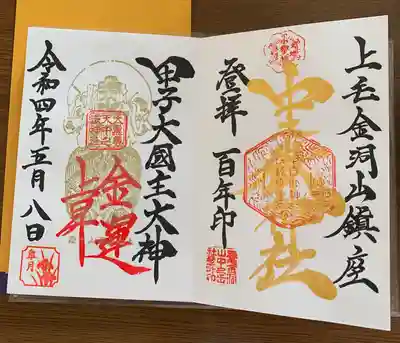 上毛金洞山鎮座
中之嶽神社
登拝 百年印
甲子大國主大神
金運
上昇
令和四年五月八日
皐月